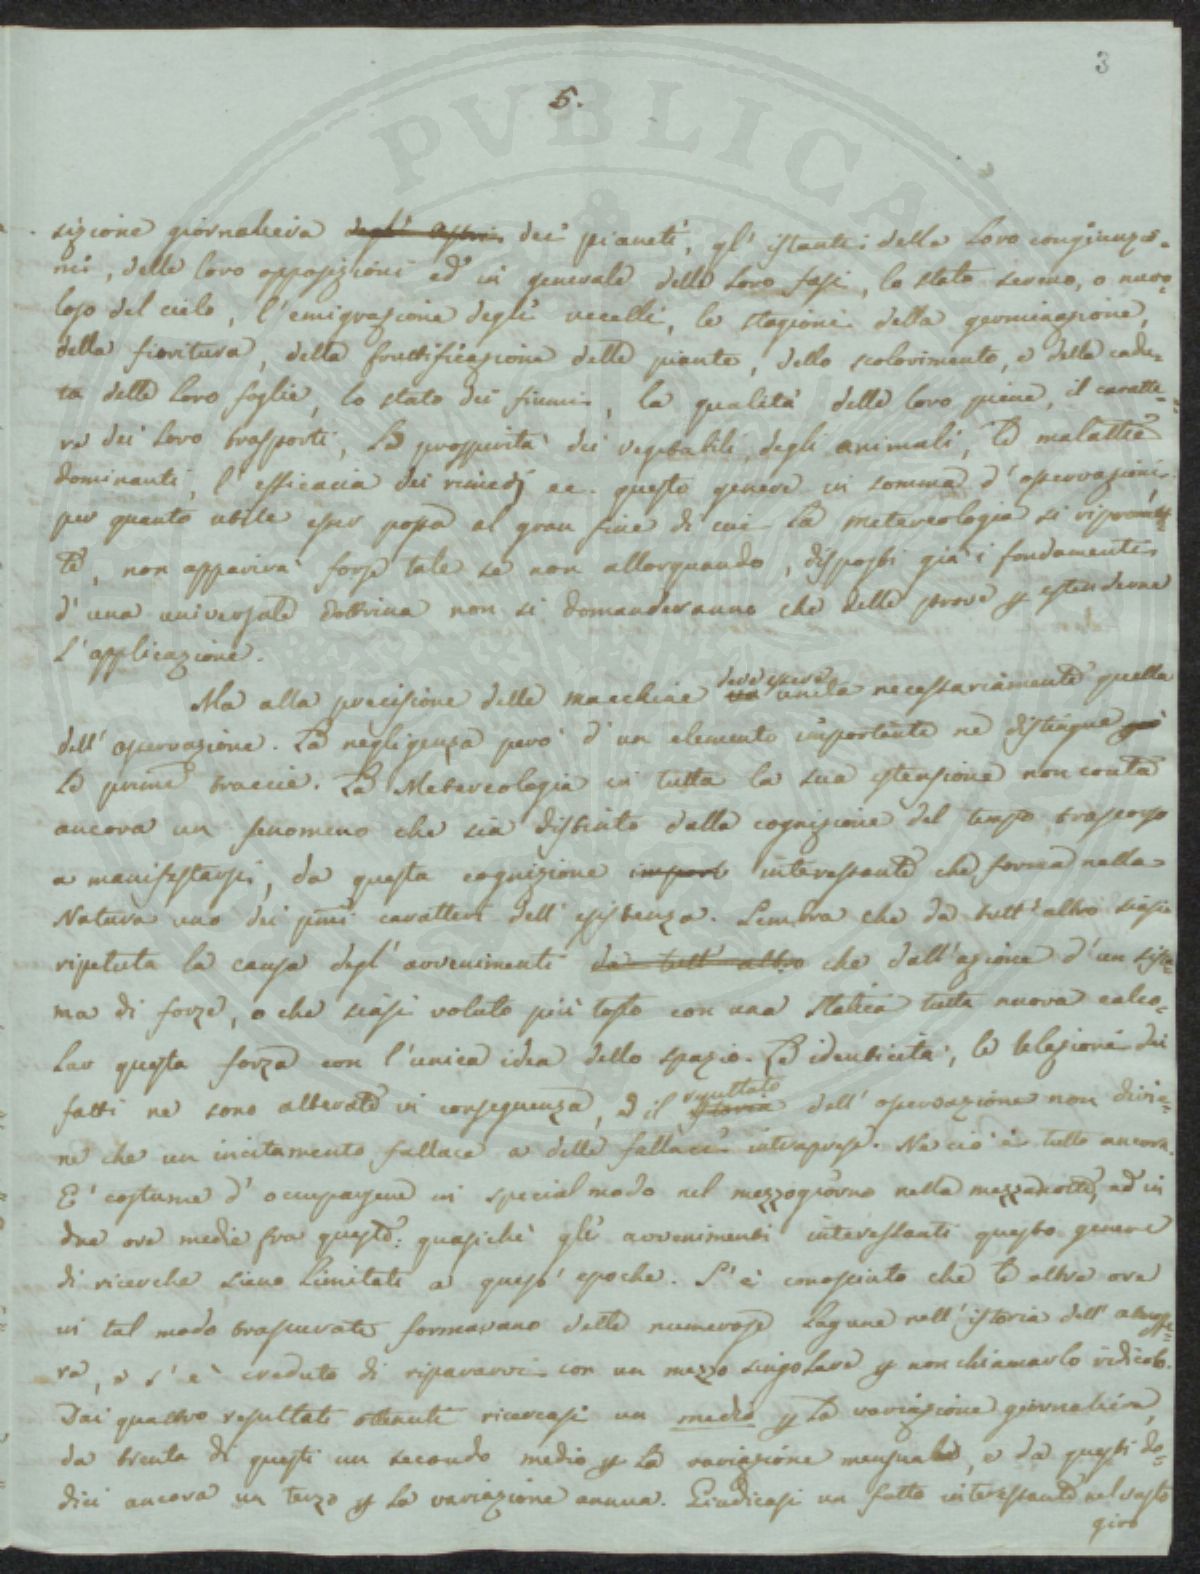 3
5.
sizione giornaliera degl' Astri dei pianeti, gl' istanti della loro congiunzio-
ni, delle loro opposizioni ed in generale delle loro fasi, lo stato sereno, o nuvo-
loso del cielo, l'emigrazione degli uccelli, le stagioni della germinazione,
della fioritura, della fruttificazione delle piante, dello scolorimento, e della cadu-
ta delle loro foglie, lo stato dei fiumi, la qualità delle loro piene, il caratte-
re dei loro trasporti, la prosperità dei vegetabili, degli animali, le malattie
dominanti, l'efficacia dei rimedj ec. questo genere in somma d'osservazioni
per quanto utile esser possa al gran fine di cui la metereologia si ripromet-
te, non apparirà forse tale se non allorquando, disposti già i fondamenti
d'una universale dottrina non si domanderanno che delle prove p estenderne
l'applicazione.
Ma alla precisione delle macchine deve essere unita necessariamente quella
dell'osservazione. La negligenza però d'un elemento importante ne distingue già
le prime traccie. La Metereologia in tutta la sua estensione non conta
ancora un fenomeno che sia distinto dalla cognizione del tempo trascorso
a manifestarsi, da questa cognizione import interessante che forma nella
Natura uno dei pmi caratteri dell'esistenza. Sembra che da tutt'altro siasi
ripetuta la causa degl'avvenimenti da tutt' altro che dall'azione d'un siste-
ma di forze, o che siasi voluto più tosto con una statica tutta nuova calco-
lar questa forza con l'unica idea dello spazio. Le identicità, le relazioni dei
fatti ne sono alterate in conseguenza, e il resultato storia dell'osservazione non divie-
ne che un incitamento fallace a delle fallaci intraprese. Ne ciò è tutto ancora.
E' costume d'occuparsene in special modo nel mezzogiorno nella mezzanotte, ed in
due ore medie fra queste: quasichè gli avvenimenti interessanti questo genere
di ricerche sieno limitati a quest'epoche. S'è conosciuto che le altre ore
in tal modo trascurate formavano delle numerose lagune nell'istoria dell'atmosfe-
ra, e s'è creduto di ripararvi con un mezzo singolare p non chiamarlo ridicolo.
Dai quattro resultati ottenuti ricercasi un medio p la variazione giornaliera,
da trenta di questi un secondo medio p la variazione mensuale, e da questi do-
dici ancora un terzo p la variazione annua. Giudicasi un fatto interessante nel vasto
giro